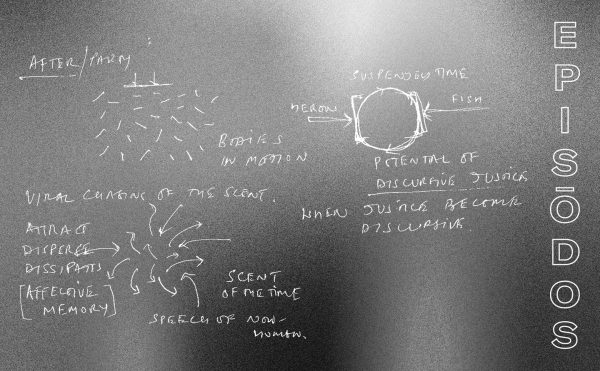 AFTER/PARTY :
BODIES
IN MOTION
SUSPENDED TIME
HERON
FISH
POTENTAL OF
DISCURSIVE JUSTICE
WHEN JUSTICE BECOME
DISCURSIVE.
VIRAL CHASING OF THE SCENT.
ATTRACT
DISPERSE
DISSIPATES
[AFFECTIVE
MEMORY]
SCENT
OF THE TIME
SPEECH OF NON-
HUMAN.
EPISŌDOS